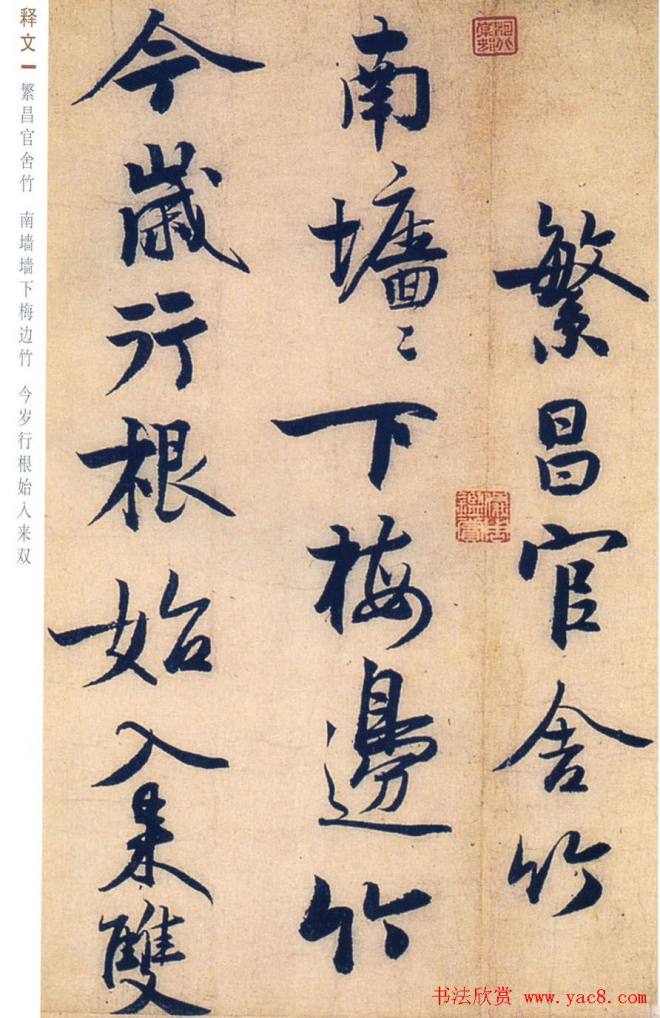 繁昌官舍竹
南墻〻下梅邊竹
今歲行根始入来雙
释文
繁昌官舍竹 南墙墙下梅边竹 今岁行根始入来双
书法欣赏 www.yac8.com